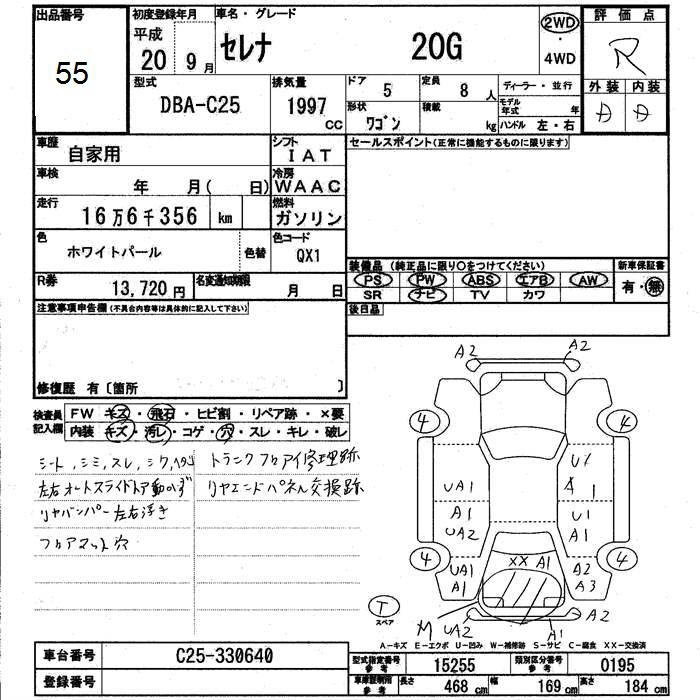 出品番号
55
初度登録年月
平成
20 9月
車名・グレード
セレナ 20G
2WD
・
4WD
評価点
R
外装 内装
D D
型式
DBA-C25
排気量
1997 CC
ドア 5
定員 8 人
形状 ワゴン
積載 kg
ディーラー・並行
モデル年式 年
ハンドル 左・右
車歴 自家用
シフト IAT
車検 年 月( 日)
冷房 WAAC
走行 16万6千356 km
燃料 ガソリン
色 ホワイトパール 色替
色コード QX1
R券 13,720円
名変通知期限 月 日
セールスポイント(正常に機能するものに限ります)
装備品 (純正品に限り○をつけてください)
新車保証書
PS PW ABS エアB AW
SR ナビ TV カワ
有・無
後日品
注意事項申告欄(不具合内容等は具体的に記入して下さい)
修復歴 有〔箇所 〕
検査員
記入欄
FW キズ・飛石・ヒビ割・リペア跡・×要
内装 キズ・汚レ・コゲ・穴・スレ・キレ・破レ
シート、シミ、スレ、
トランクフロアイ修理跡
左右オートスライドドア動かず
リヤエンドパネル交換跡
リヤバンパー左右浮き
フロアマット穴
A2 A2
4 4
U1
UA1 A 1
A1 U1
UA2 A1
4 4
UA1 XX A1 A2
A1 A3
T
スペア
M UA2 A1 A2
A-キズ E-エクボ U-凹み W-補修跡 S-サビ C-腐食 XX-交換済
車台番号 C25-330640
登録番号
型式指定番号 参考 15255
類別区分番号 参考 0195
車庫証明用 参考
長さ 468 cm
幅 169 cm
高さ 184 cm